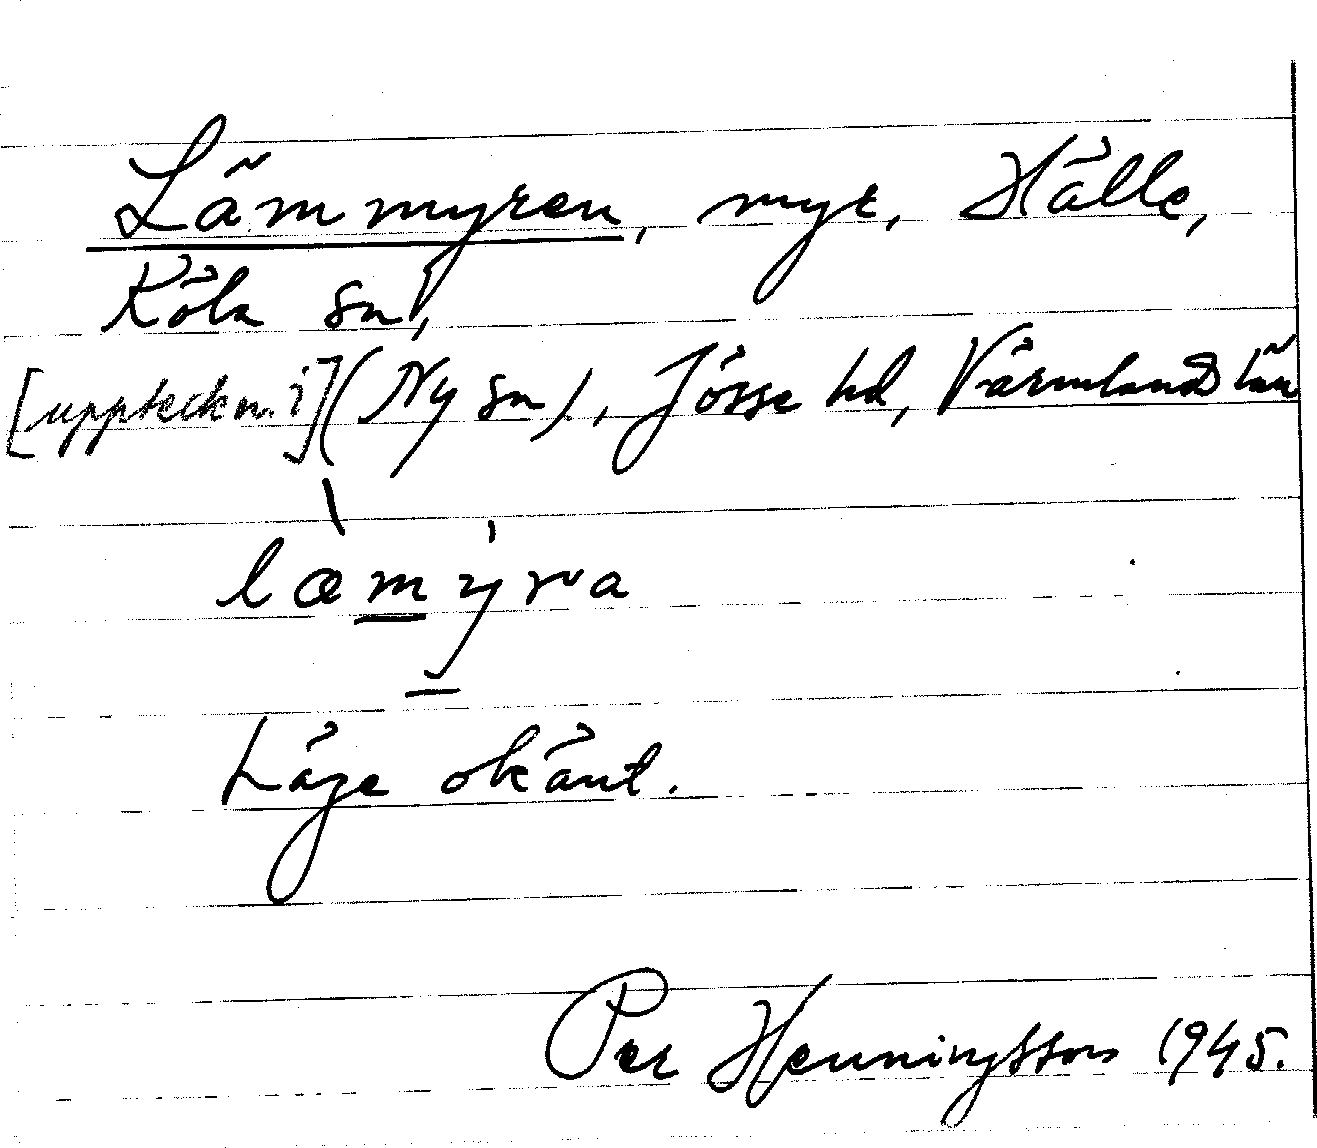 Lämmyren, myr, Hälle,
Köla sn,
[uppteckn. i] (Ny sn), Jösse hd, Värmlands län
læmyra
Läge okänt.
Per Henningsson 1945.